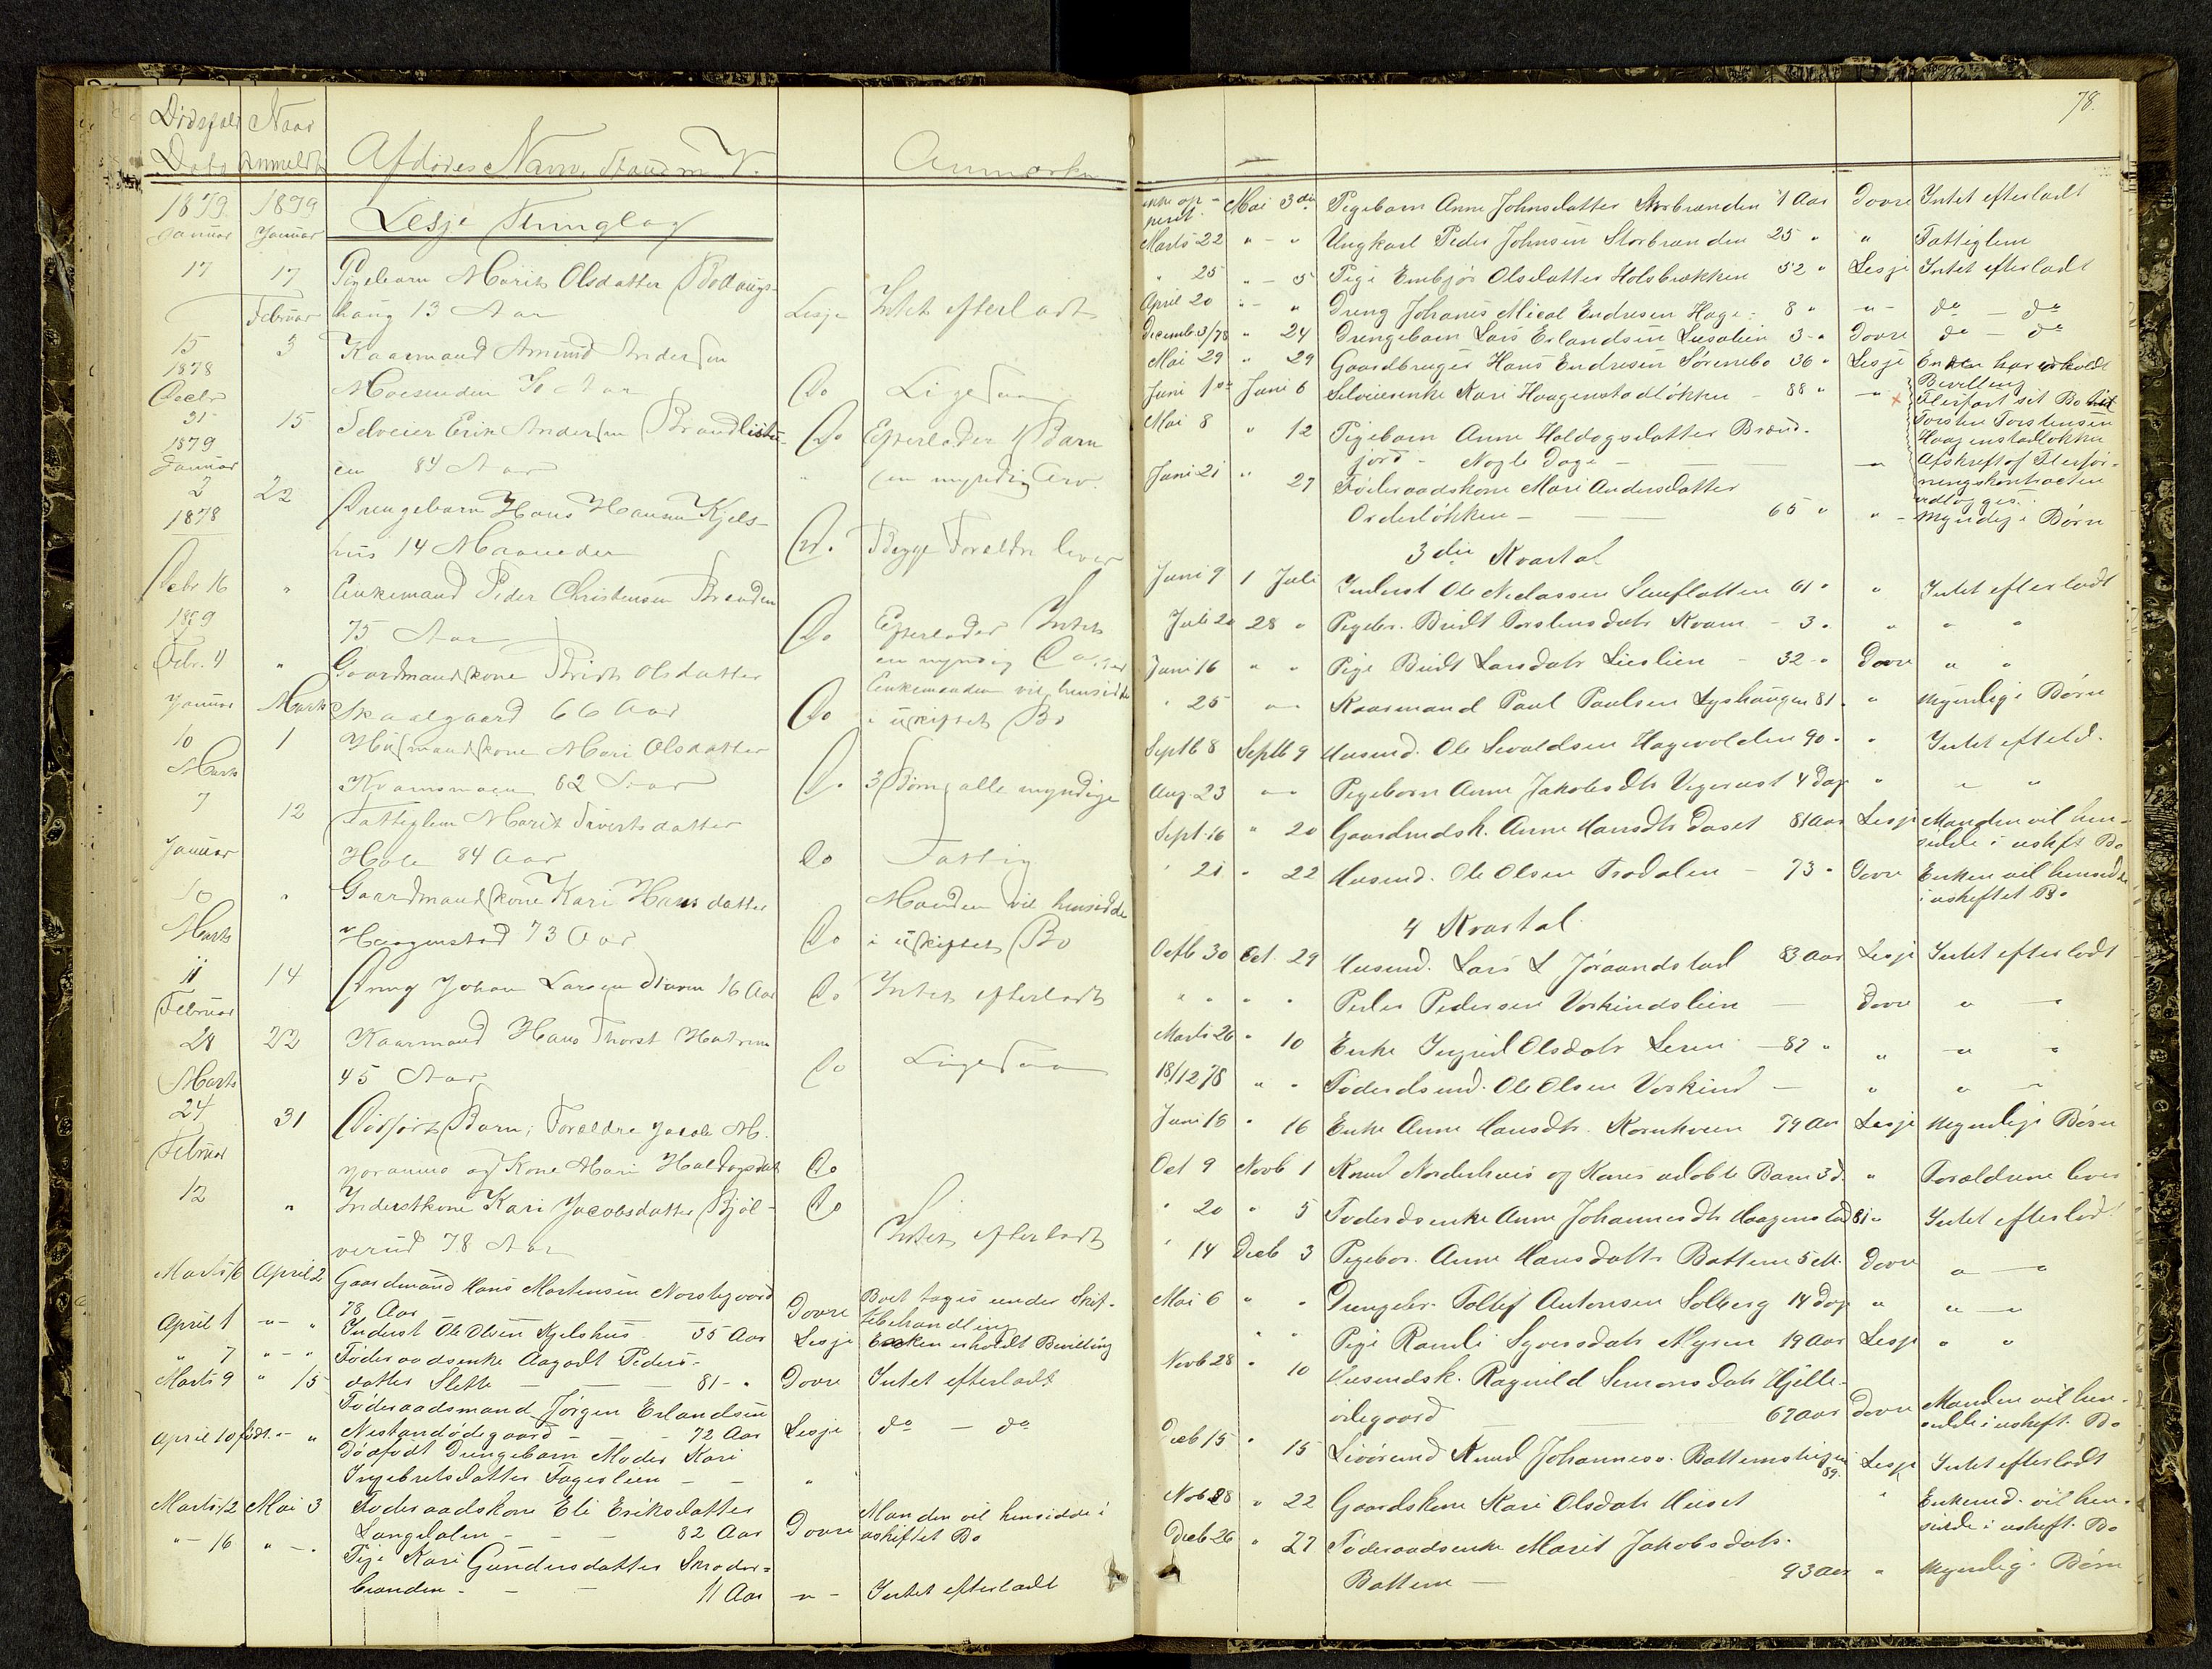 Dødsfald Naar
Dato Anmeldt Afdødes Navn, Stand m V. Anmærkn
1879. 1879 Lesje Thinglag
Januar Januar
17 17 Pigebarn Marit Olsdatter Bottangs-
Februar haug 13 Aar Lesje Intet efterladt
15 3 Kaarmand Amund Andersen
1878 Moesenden 70 Aar Do Ligesaa
Decbr
31 15 Selveier Erik Andersen Brandliste- Do Efterlader 1 Barn
1879 en 84 Aar en myndig Arv.
Januar
2 22 Drengebarn Hans Hansen Kjels-
1878 hus 14 Maaneder Do. Begge Forældre lever
Debr 16 " Enkemand Peder Christensen Brænden
1879 75 Aar Do Efterlader Intet
Febr. 4 " Gaardmandskone Brit Olsdatter en myndig
Januar Marts Skaalgaard 66 Aar Do Enkemanden vil hensidde i uskiftet Bo
10 1 Husmandskone Mari Olsdatter
Marts Kvamsmoen 62 Aar Do 3 Børn, alle myndige
7 12 Fattiglem Marit Sivertsdatter
Januar Hole 84 Aar Do Fattig
10 " Gaardmandskone Kari Hansdatter Manden vil hensidde
Marts Haagenstad 73 Aar Do i uskiftet Bo
11 14 Dreng Johan Larsen 16 Aar Do Intet efterladt
Februar
28 22 Kaarmand Hans Thorst
Marts 45 Aar Do Ligesaa
24 31 Dødfødt Barn; Forældre Jacob M.
Februar og Kone Mari Haldogsdatt Do
12 " Inderstkone Kari Jacobsdatter Bjøl- Do
verud 78 Aar Intet efterladt
Marts 16 April 2 Gaardmand Hans Mortensen Norstegaard
78 Aar Dovre Boet tages under Skif-
April 1 " - " Inderst Ole Olsen Kjelshus 35 Aar Lesje tebehandling
" 7 " - " Føderaadsenke Aagodt Peders- Enken erholdt Bevilling
Marts 9 " 15 datter Slette — 81 - " Dovre Intet efterladt
Føderaadsmand Jørgen Erlandsen
April 10 født - " Nestandødegaard - 72 Aar Lesje do - do
Dødfødt Drengebarn Moder Kari
Ingebretsdatter Fagerlien - - "
Marts 12 Mai 3 Føderaadskone Eli Eriksdatter Manden vil hensidde i
Langdalen - - - 82 Aar Dovre uskiftet Bo
" - 16 " - " Pige Kari Gundersdatter
brænden - - 11 Aar - " - Intet efterladt
78.
ikke op- Mai 3die Pigebarn Anne Johnsdatter Storbrænden 1 Aar Dovre Intet efterladt
Marts 22 " - " Ungkarl Peder Johnsen Storbrænden 25 " " Fattiglem
" 25 " - 5 Pige Embjør Olsdatter Holsbrækken 52 " Lesje Intet efterladt
April 20 " - " Dreng Johanes Mical Endresen Hage: 8 " " - do - do
Decemb 3/78 " 24 Drengebarn Lars Erlandsen Lusolien 3 - " Dovre do do
Mai 29 " 29 Gaardbruger Hans Endresen Sørenebo 36 " Lesje Enken har erholdt
Bevilling
Juni 1ste Juni 6 Selveierenke Kari Haagenstadløkken - 88 " - " x Overført sit Bo til
Torsten Torstensen
Mai 8 " 12 Pigebarn Anne Haldogsdatter Brænd- Haagenstadløkken
jord - Nogle Dage - - " Afskrift af Overfør-
Juni 21 " 27 Føderaadskone Mari Andersdatter ningskontracten
udlægges.
Orderløkken - 65 " " - Myndige Børn
3die Kvartal
Juni 9 1 Juli Inderst Ole Nielassen Stueflotten 61 " " Intet efterladt
Juli 20 28 " Pigebr. Bridt Torstensdatr Kvam - 3 " " " "
Juni 16 " " Pige Bridt Larsdatr Lieslien - 32 - " Dovre " "
" 25 " - Kaarmand Paul Paulsen Lyshaugen 81 " " Myndige Børn
Septb 8 Septb 9 Husmd. Ole Sevaldsen Hagevolden 90 " " Intet efterld.
Aug. 23 " - Pigebarn Anne Jakobsdtr Vigerust 4 Dag " " "
Sept. 16 " 20 Gaardmdsk. Anne Hansdtr Daset 81 Aar Lesje Manden vil hen-
sidde i uskift Bo
" 21 " 22 Husmd. Ole Olsen Trodalen - 73 " Dovre Enken vil hensidde
i uskiftet Bo
4 Kvartal
Octb 30 Oct. 29 Husmd. Lars L Jøraandstad 83 Aar Lesje Intet efterladt
" " " " Peder Pedersen Vorkindslien - Dovre " "
Marts 26 " 10 Enke Ingrid Olsdatr Leren - 82 " " " "
18/12 78 " " Føderdsmd. Ole Olsen Vorkind - " " "
Juni 16 " 16 Enke Anne Hansdtr. Kornhven 74 Aar Lesje Myndige Børn
Oct 9 Novb 1 Knud Norderhus og Kones udøbte Barn 3 d. " Forældrene lever
" 20 " 5 Føderdsenke Anne Johannesdtr Haagenstad 81 " Intet efterladt
" 14 Decb 3 Pigebar. Anne Hansdattr Bottem 5 M. Dovre " - "
Mai 6 " " Drengebr. Tollef Antonsen Solberg 14 Dag " " - "
" " Pige Ramli Syversdatr Nyren 19 Aar Lesje " "
Novb 28 " 10 Husmdsk. Ragnild Simonsdatr Hjelle-
ødegaard - 67 Aar Dovre Manden vil hen-
sidde i uskift. Bo
Decb 15 " 15 Knud Johanness. Bottemstuguen 59 - Lesje Intet efterladt
Nvb 28 " 22 Gaardskone Kari Olsdatr Huset " Enkemd. vil hen-
sidde i uskift. Bo
Decb 26 " 27 Føderaadsenke Marit Jakobsdatr.
Bottem - 93 Aar " Myndige Børn